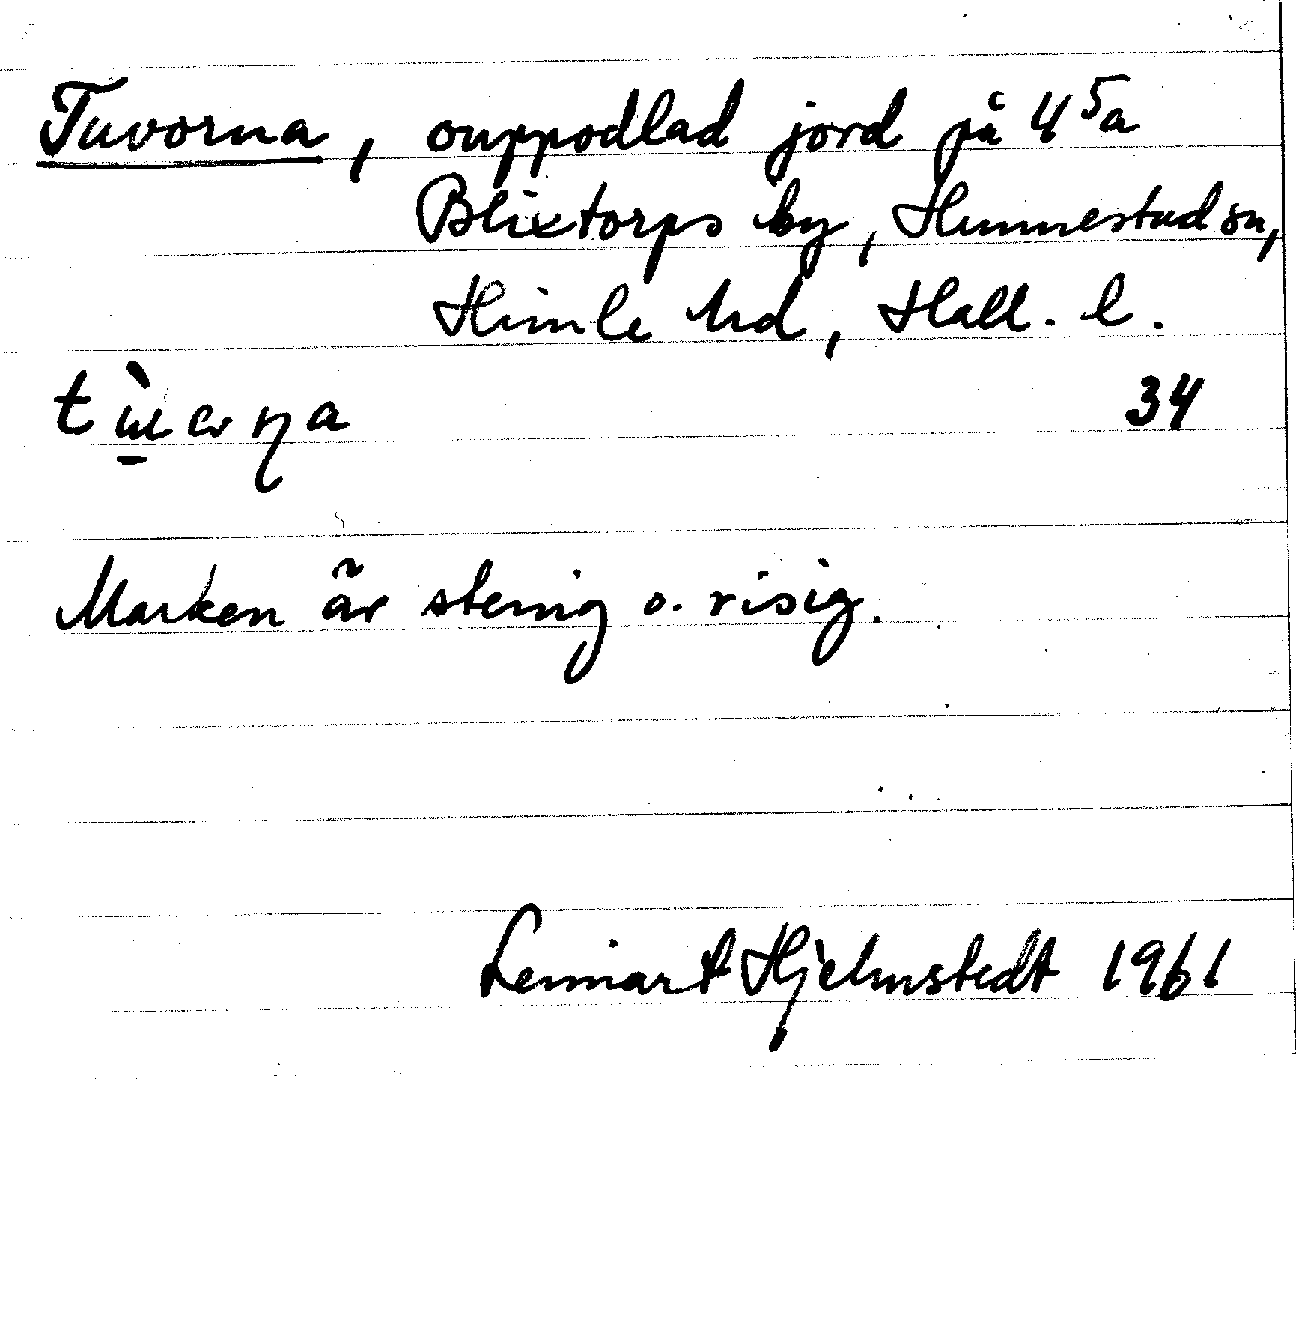 Tuvorna, ouppodlad jord på 4⁵a
Blixtorps by, Hunnestad sn,
Himle hd, Hall. l.
34
Marken är stenig o. risig.
Lennart Hjelmstedt 1961